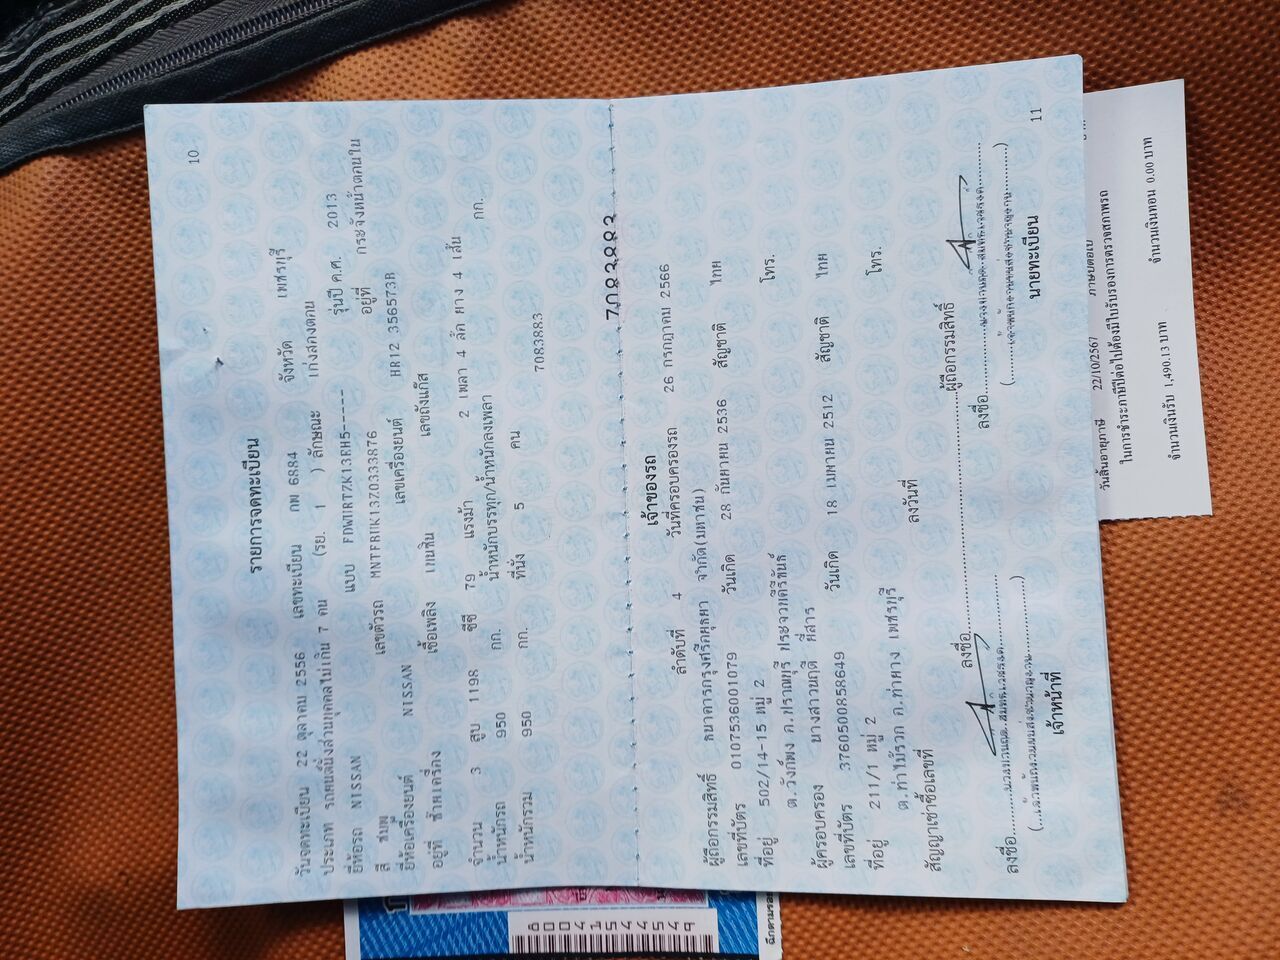 10
รายการจดทะเบียน
วันจดทะเบียน 22 ตุลาคม 2556 เลขทะเบียน กพ 6884 จังหวัด เพชรบุรี
ประเภท รถยนต์นั่งส่วนบุคคลไม่เกิน 7 คน (รย. 1 ) ลักษณะ เก๋งสองตอน
ยี่ห้อรถ NISSAN แบบ FDWIRTZK13RH5----- รุ่นปี ค.ศ. 2013
สี ชมพู เลขตัวรถ MNTFBUK13Z0333876 อยู่ที่ กระจังหน้าตอนใน
ยี่ห้อเครื่องยนต์ NISSAN เลขเครื่องยนต์ HR12 356573B
อยู่ที่ ซ้ายเครื่อง เชื้อเพลิง เบนซิน เลขถังแก๊ส
จำนวน 3 สูบ 1198 ซีซี 79 แรงม้า 2 เพลา 4 ล้อ ยาง 4 เส้น
น้ำหนักรถ 950 กก. น้ำหนักบรรทุก/น้ำหนักลงเพลา กก.
น้ำหนักรวม 950 กก. ที่นั่ง 5 คน 7083883
7083883
เจ้าของรถ
ลำดับที่ 4 วันที่ครอบครองรถ 26 กรกฎาคม 2566
ผู้ถือกรรมสิทธิ์ ธนาคารกรุงศรีอยุธยา จำกัด(มหาชน)
เลขที่บัตร 0107536001079 วันเกิด 28 กันยายน 2536 สัญชาติ ไทย
ที่อยู่ 502/14-15 หมู่ 2 โทร.
ต.วังก์พง อ.ปราณบุรี ประจวบคีรีขันธ์
ผู้ครอบครอง นางสาวนฤดี ผีสาร
เลขที่บัตร 3760500858649 วันเกิด 18 เมษายน 2512 สัญชาติ ไทย
ที่อยู่ 211/1 หมู่ 2 โทร.
ต.ท่าไม้รวก อ.ท่ายาง เพชรบุรี
สัญญาเช่าซื้อเลขที่ ลงวันที่
ลงชื่อ ผู้ถือกรรมสิทธิ์
ลงชื่อ ลงชื่อ
เจ้าหน้าที่ นายทะเบียน
11
วันสิ้นอายุภาษี 22/10/2567
ในการชำระภาษีปีต่อไปต้องมีใบรับรองการตรวจสภาพรถ
จำนวนเงินรับ 1,490.13 บาท จำนวนเงินทอน 0.00 บาท